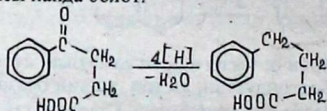 O
C
CH₂
CH₂
HOOC
4[H]
-H₂O
CH₂
CH₂
CH₂
HOOC